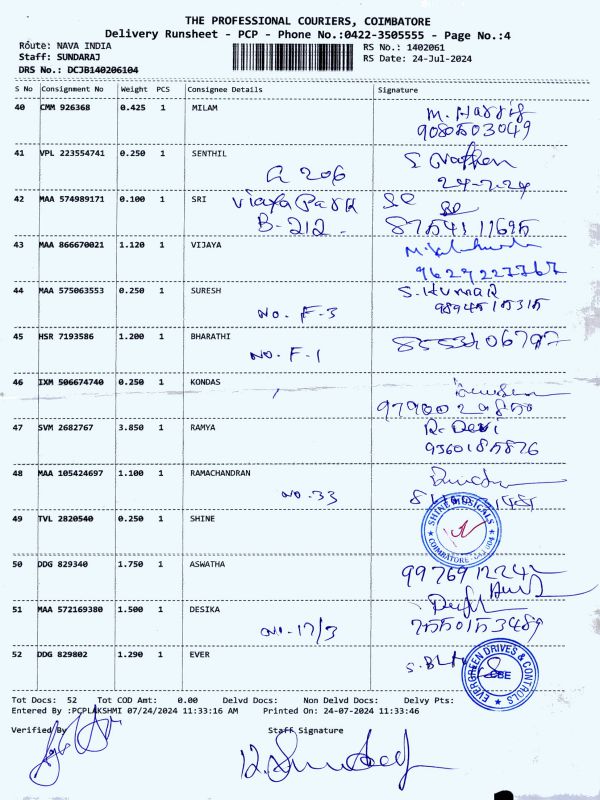 THE PROFESSIONAL COURIERS, COIMBATORE
Delivery Runsheet - PCP - Phone No.:0422-3505555 - Page No.:4
Route: NAVA INDIA
Staff: SUNDARAJ
DRS No.: DCJB140206104
RS No.: 1402061
RS Date: 24-Jul-2024
S No Consignment No Weight PCS Consignee Details Signature
40 CMM 926368 0.425 1 MILAM M. Harris
9080503049
41 VPL 223554741 0.250 1 SENTHIL
A 206 24-7-24
42 MAA 574989171 0.100 1 SRI Vijaya Park
B-212. 8754111695
43 MAA 866670021 1.120 1 VIJAYA
9629227767
44 MAA 575063553 0.250 1 SURESH S. Kumar
No. F-3 9894515315
45 HSR 7193586 1.200 1 BHARATHI
No. F-1
46 IXM 506674740 0.250 1 KONDAS
47 SVM 2682767 3.850 1 RAMYA R. Devi
9360185876
48 MAA 105424697 1.100 1 RAMACHANDRAN
No. 33
49 TVL 2820540 0.250 1 SHINE
SHINE MUSICALS
50 DDG 829340 1.750 1 ASWATHA
51 MAA 572169380 1.500 1 DESIKA
No. 17/3 7550153489
52 DDG 829802 1.290 1 EVER
EVERGREEN DRIVES & CONTROLS
CBE
Tot Docs: 52 Tot COD Amt: 0.00 Delvd Docs: Non Delvd Docs: Delvy Pts:
Entered By :PCPLAKSHMI 07/24/2024 11:33:16 AM Printed On: 24-07-2024 11:33:46
Verified By Staff Signature